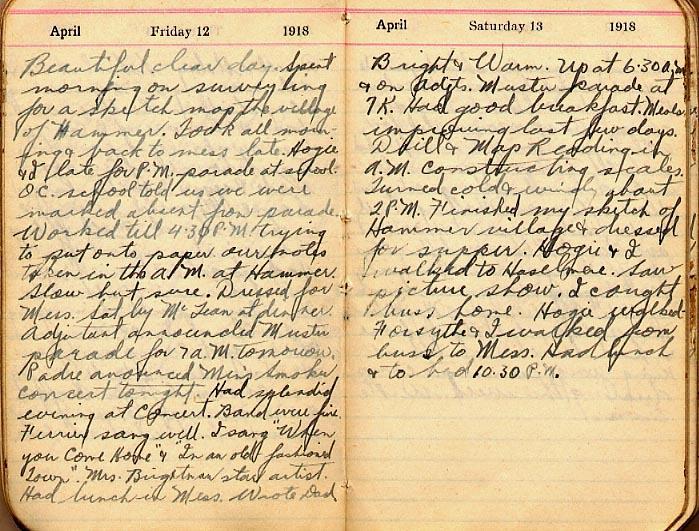 April Friday 12 1918
Beautiful clear day. Spent
morning on surveying
for a sketch map the village
of Hammer. Took all morn-
ing & back to mess late. Hogie
& I late for P.M. parade at school.
O.C. school told us we were
marked absent from parade.
Worked till 4:30 P.M. trying
to put onto paper our notes
taken in the A.M. at Hammer.
Slow but sure. Dressed for
Mess. Sat by McLean at dinner.
Adjutant announced Muster
parade for 7 a.M. tomorrow.
Padre anounced Mess Smoker
concert tonight. Had splendid
evening at Concert. Band were fine.
Ferrier sang well. I sang "When
you Come Home" & "In an old fashioned
Town". Mrs. Brightman star artist.
Had lunch in Mess. Wrote Dad
April Saturday 13 1918
Bright & Warm. Up at 6.30 a.m
& on Adgts. Muster parade at
7K. Had good breakfast. Meals
improving last few days.
Drill & Map Reading in
A.M. Constructing scales.
Turned cold & windy about
2 P.M. Finished my sketch of
Hammer village & dressed
for supper. Hogie & I
walked to Haselmere. Saw
picture show. I caught
buss home. Hogie walked.
Forsythe & I walked from
buss to Mess. Had lunch
& to bed 10.30 P.M.